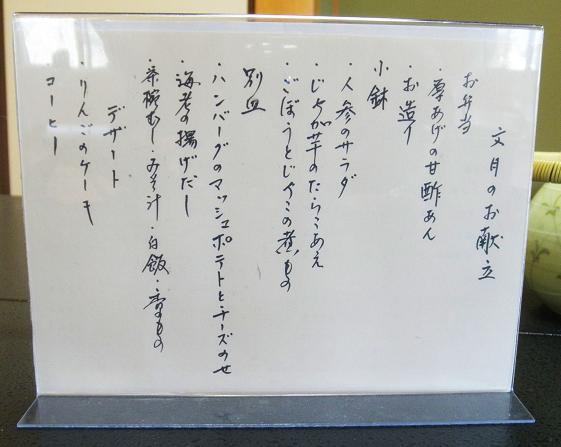 文月のお献立
お弁当
・厚あげの甘酢あん
・お造り
小鉢
・人参のサラダ
・じゃが芋のたらこあえ
・ごぼうとじゃこの煮もの
別皿
・ハンバーグのマッシュポテトとチーズのせ
・海老の揚げだし
・茶碗むし・みそ汁・白飯・香のもの
デザート
・りんごのケーキ
コーヒー